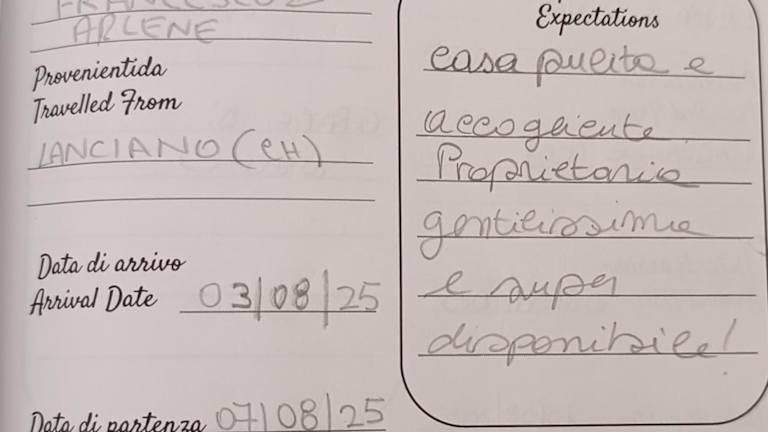 ARLENE
Provenientida
Travelled From
LANCIANO (CH)
Data di arrivo
Arrival Date 03/08/25
Data di partenza 07/08/25
Expectations
casa pulita e
accogliente
Proprietaria
gentilissima
e super
disponibile!